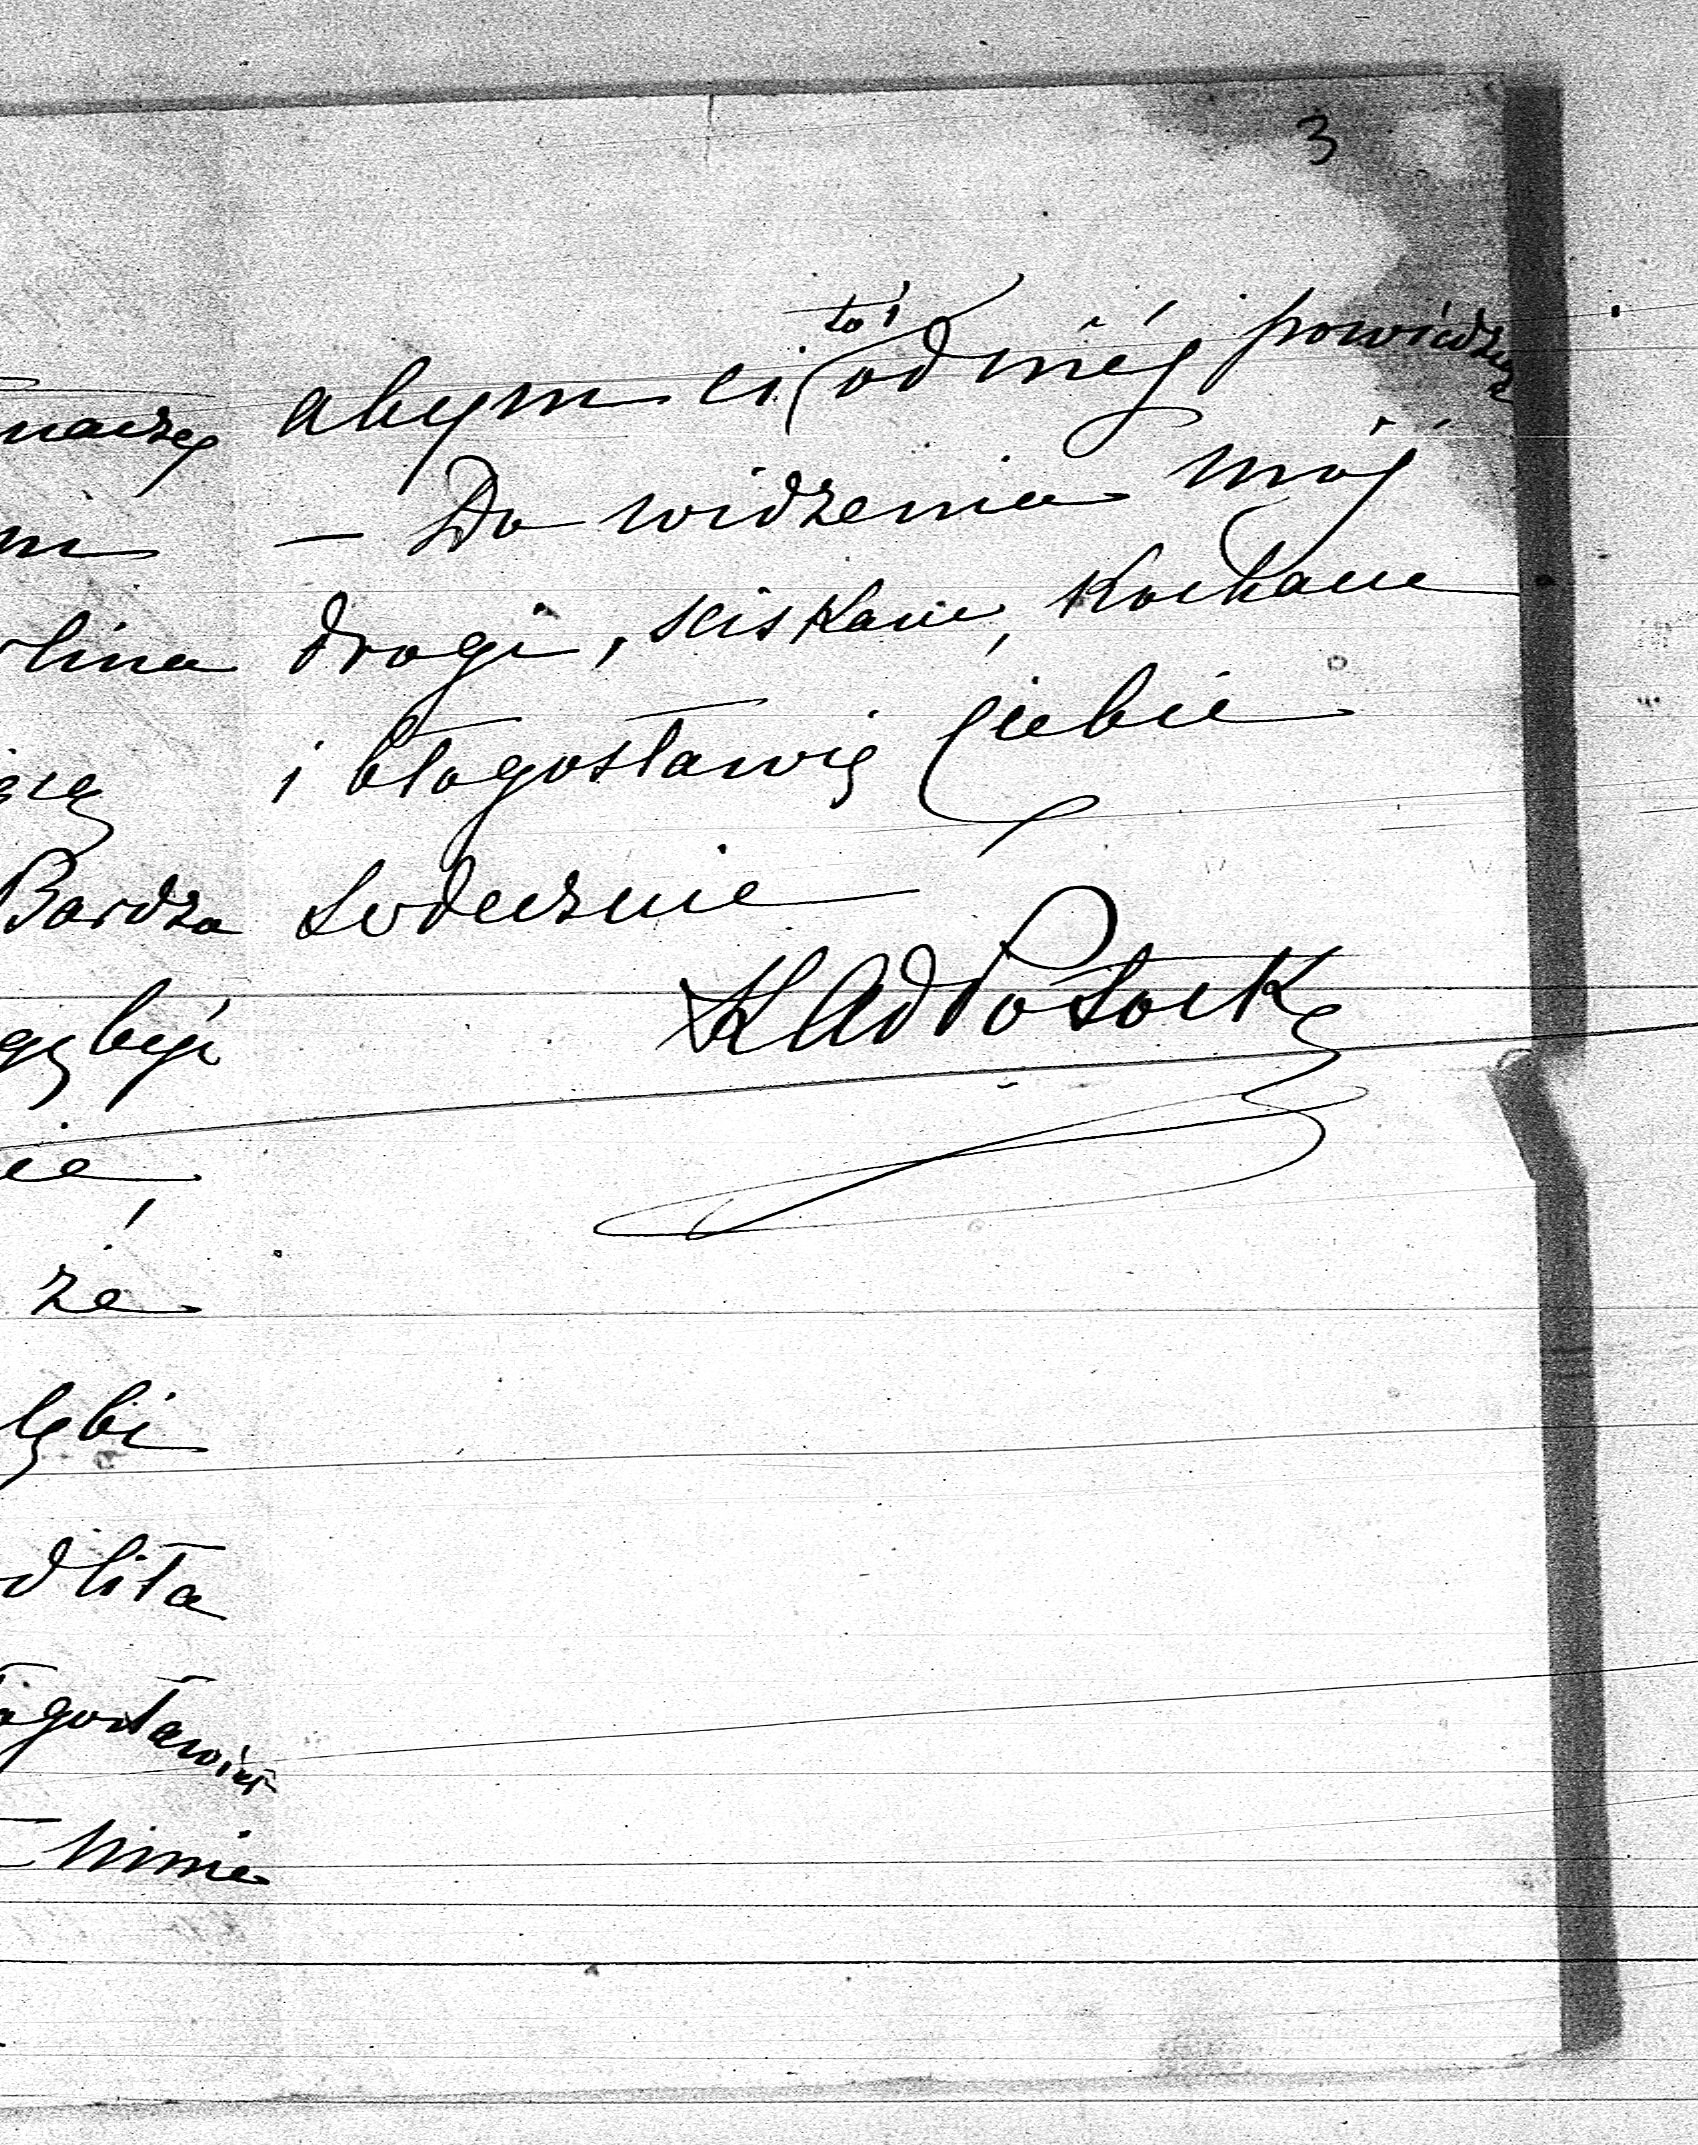 3
abym ci coś od niéj powiedzieć
— Do widzenia mój
drogi, sciskam, kocham
i błogosławię Ciebie
serdecznie
KAdPotock
naczej
ni
lina
się
Bardzo
być
cie
że
łębi
odliła
ogosławień
mnie